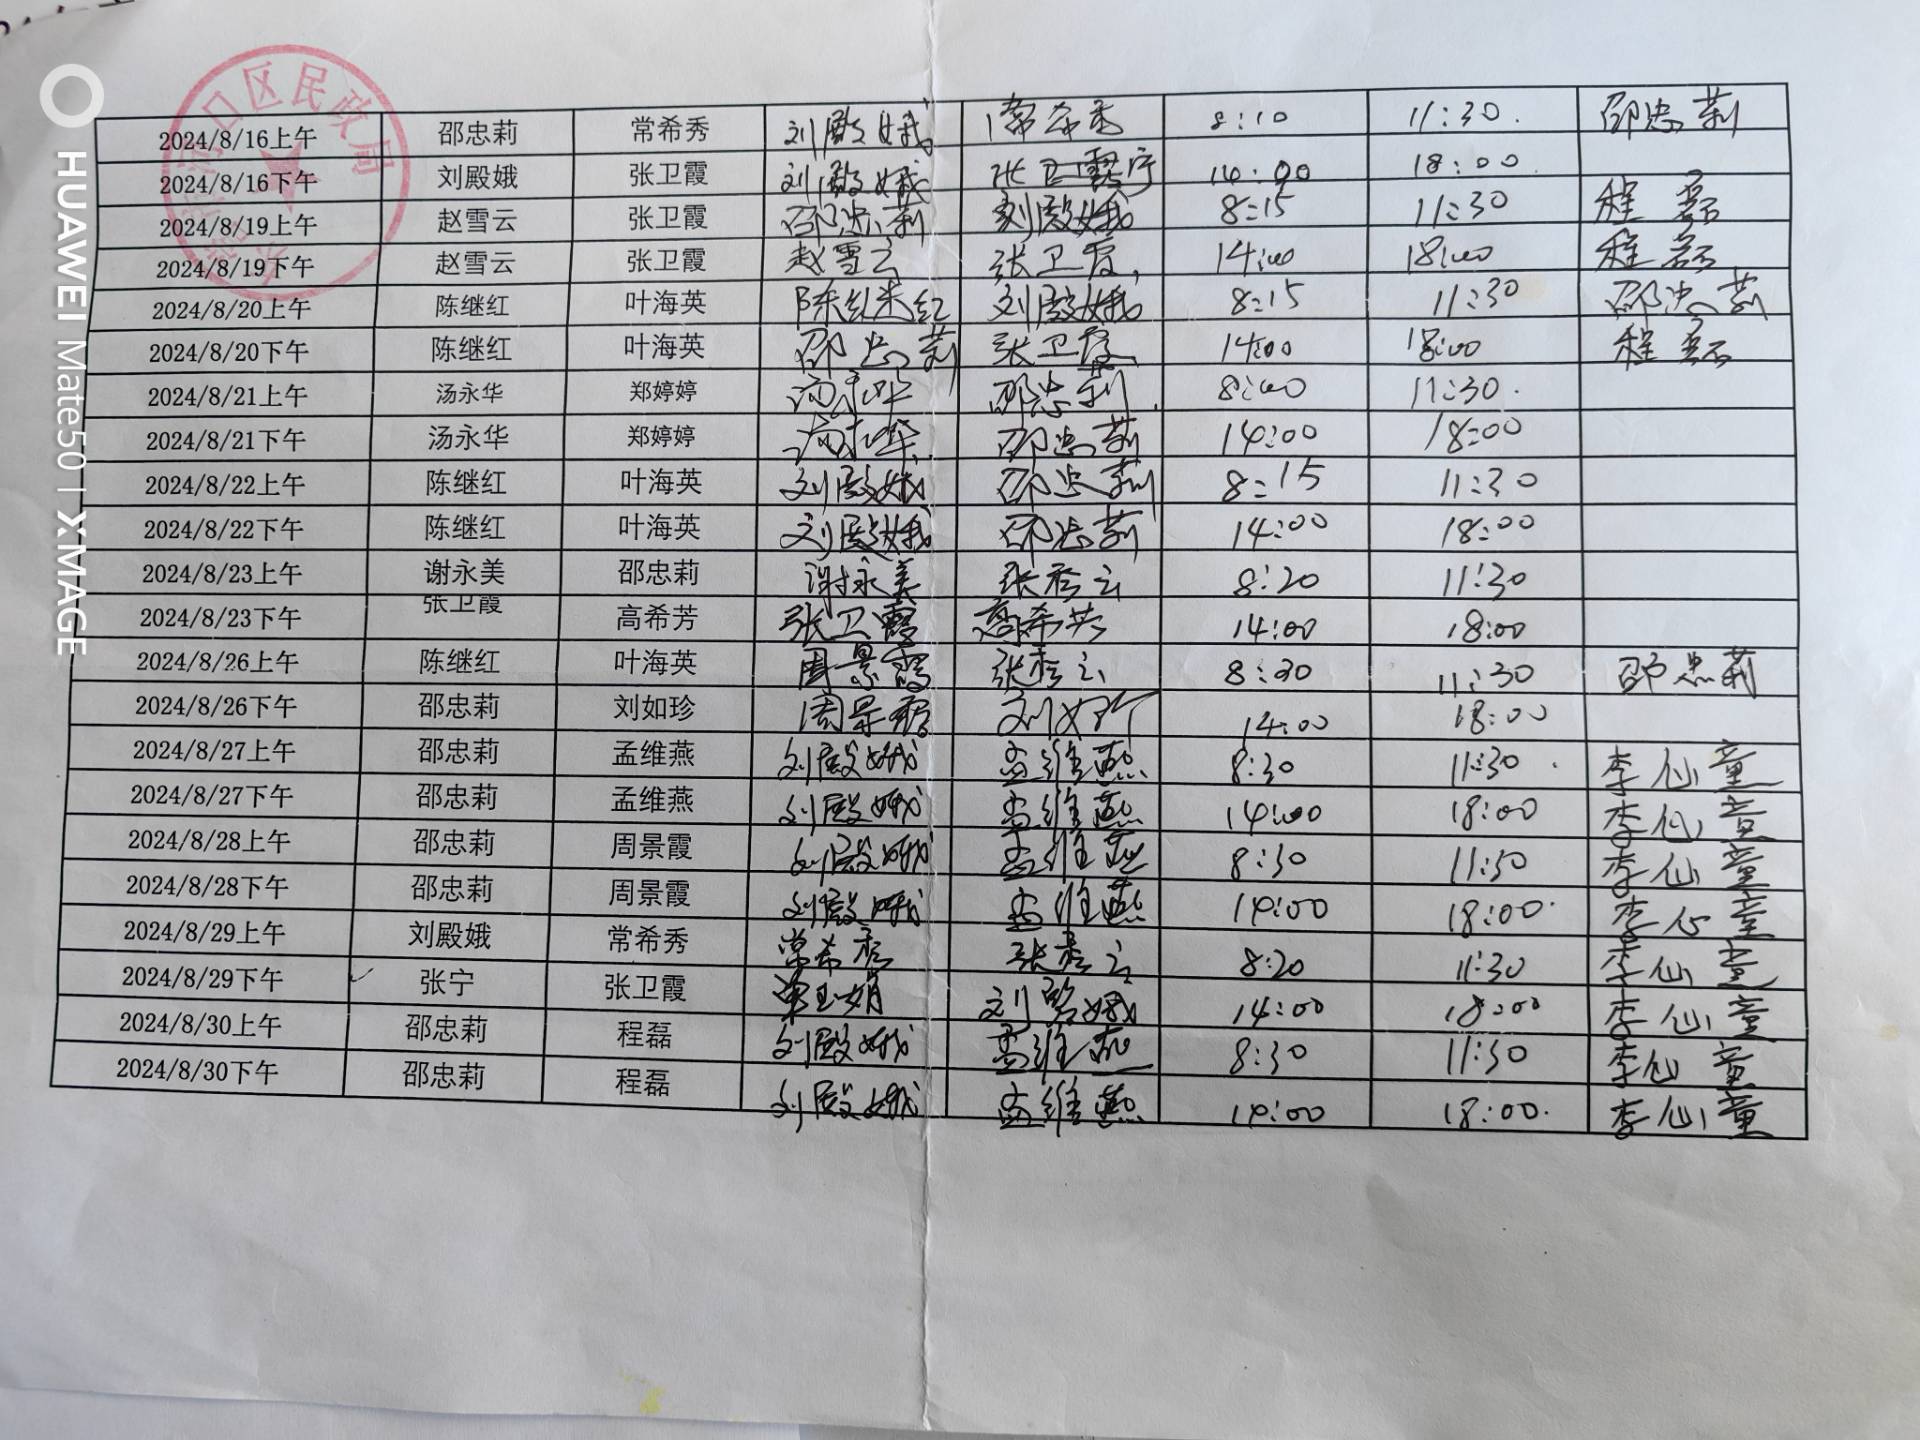 HUAWEI Mate50 | XMAGE
口区民政局
2024/8/16上午 邵忠莉 常希秀 刘殿娥 常希秀 8:10 11:30. 邵忠莉
2024/8/16下午 刘殿娥 张卫霞 刘殿娥 张卫霞 14:00 18:00
2024/8/19上午 赵雪云 张卫霞 邵忠莉 刘殿娥 8:15 11:30 程磊
2024/8/19下午 赵雪云 张卫霞 赵雪云 张卫霞 14:00 18:00 程磊
2024/8/20上午 陈继红 叶海英 陈继红 刘殿娥 8:15 11:30 邵忠莉
2024/8/20下午 陈继红 叶海英 邵忠莉 张卫霞 14:00 18:00 程磊
2024/8/21上午 汤永华 郑婷婷 汤永华 邵忠莉 8:00 11:30.
2024/8/21下午 汤永华 郑婷婷 汤永华 邵忠莉 14:00 18:00
2024/8/22上午 陈继红 叶海英 刘殿娥 邵忠莉 8:15 11:30
2024/8/22下午 陈继红 叶海英 刘殿娥 邵忠莉 14:00 18:00
2024/8/23上午 谢永美 邵忠莉 谢永美 张秀云 8:20 11:30
2024/8/23下午 张卫霞 高希芳 张卫霞 高希芳 14:00 18:00
2024/8/26上午 陈继红 叶海英 周景霞 张秀云 8:30 11:30 邵忠莉
2024/8/26下午 邵忠莉 刘如珍 周景霞 刘如珍 14:00 18:00
2024/8/27上午 邵忠莉 孟维燕 刘殿娥 孟维燕 8:30 11:30 李仙童
2024/8/27下午 邵忠莉 孟维燕 刘殿娥 孟维燕 14:00 18:00 李仙童
2024/8/28上午 邵忠莉 周景霞 刘殿娥 孟维燕 8:30 11:30 李仙童
2024/8/28下午 邵忠莉 周景霞 刘殿娥 孟维燕 14:00 18:00. 李仙童
2024/8/29上午 刘殿娥 常希秀 常希秀 张秀云 8:20 11:30 李仙童
2024/8/29下午 张宁 张卫霞 刘殿娥 14:00 18:00 李仙童
2024/8/30上午 邵忠莉 程磊 刘殿娥 孟维燕 8:30 11:30 李仙童
2024/8/30下午 邵忠莉 程磊 刘殿娥 孟维燕 14:00 18:00. 李仙童